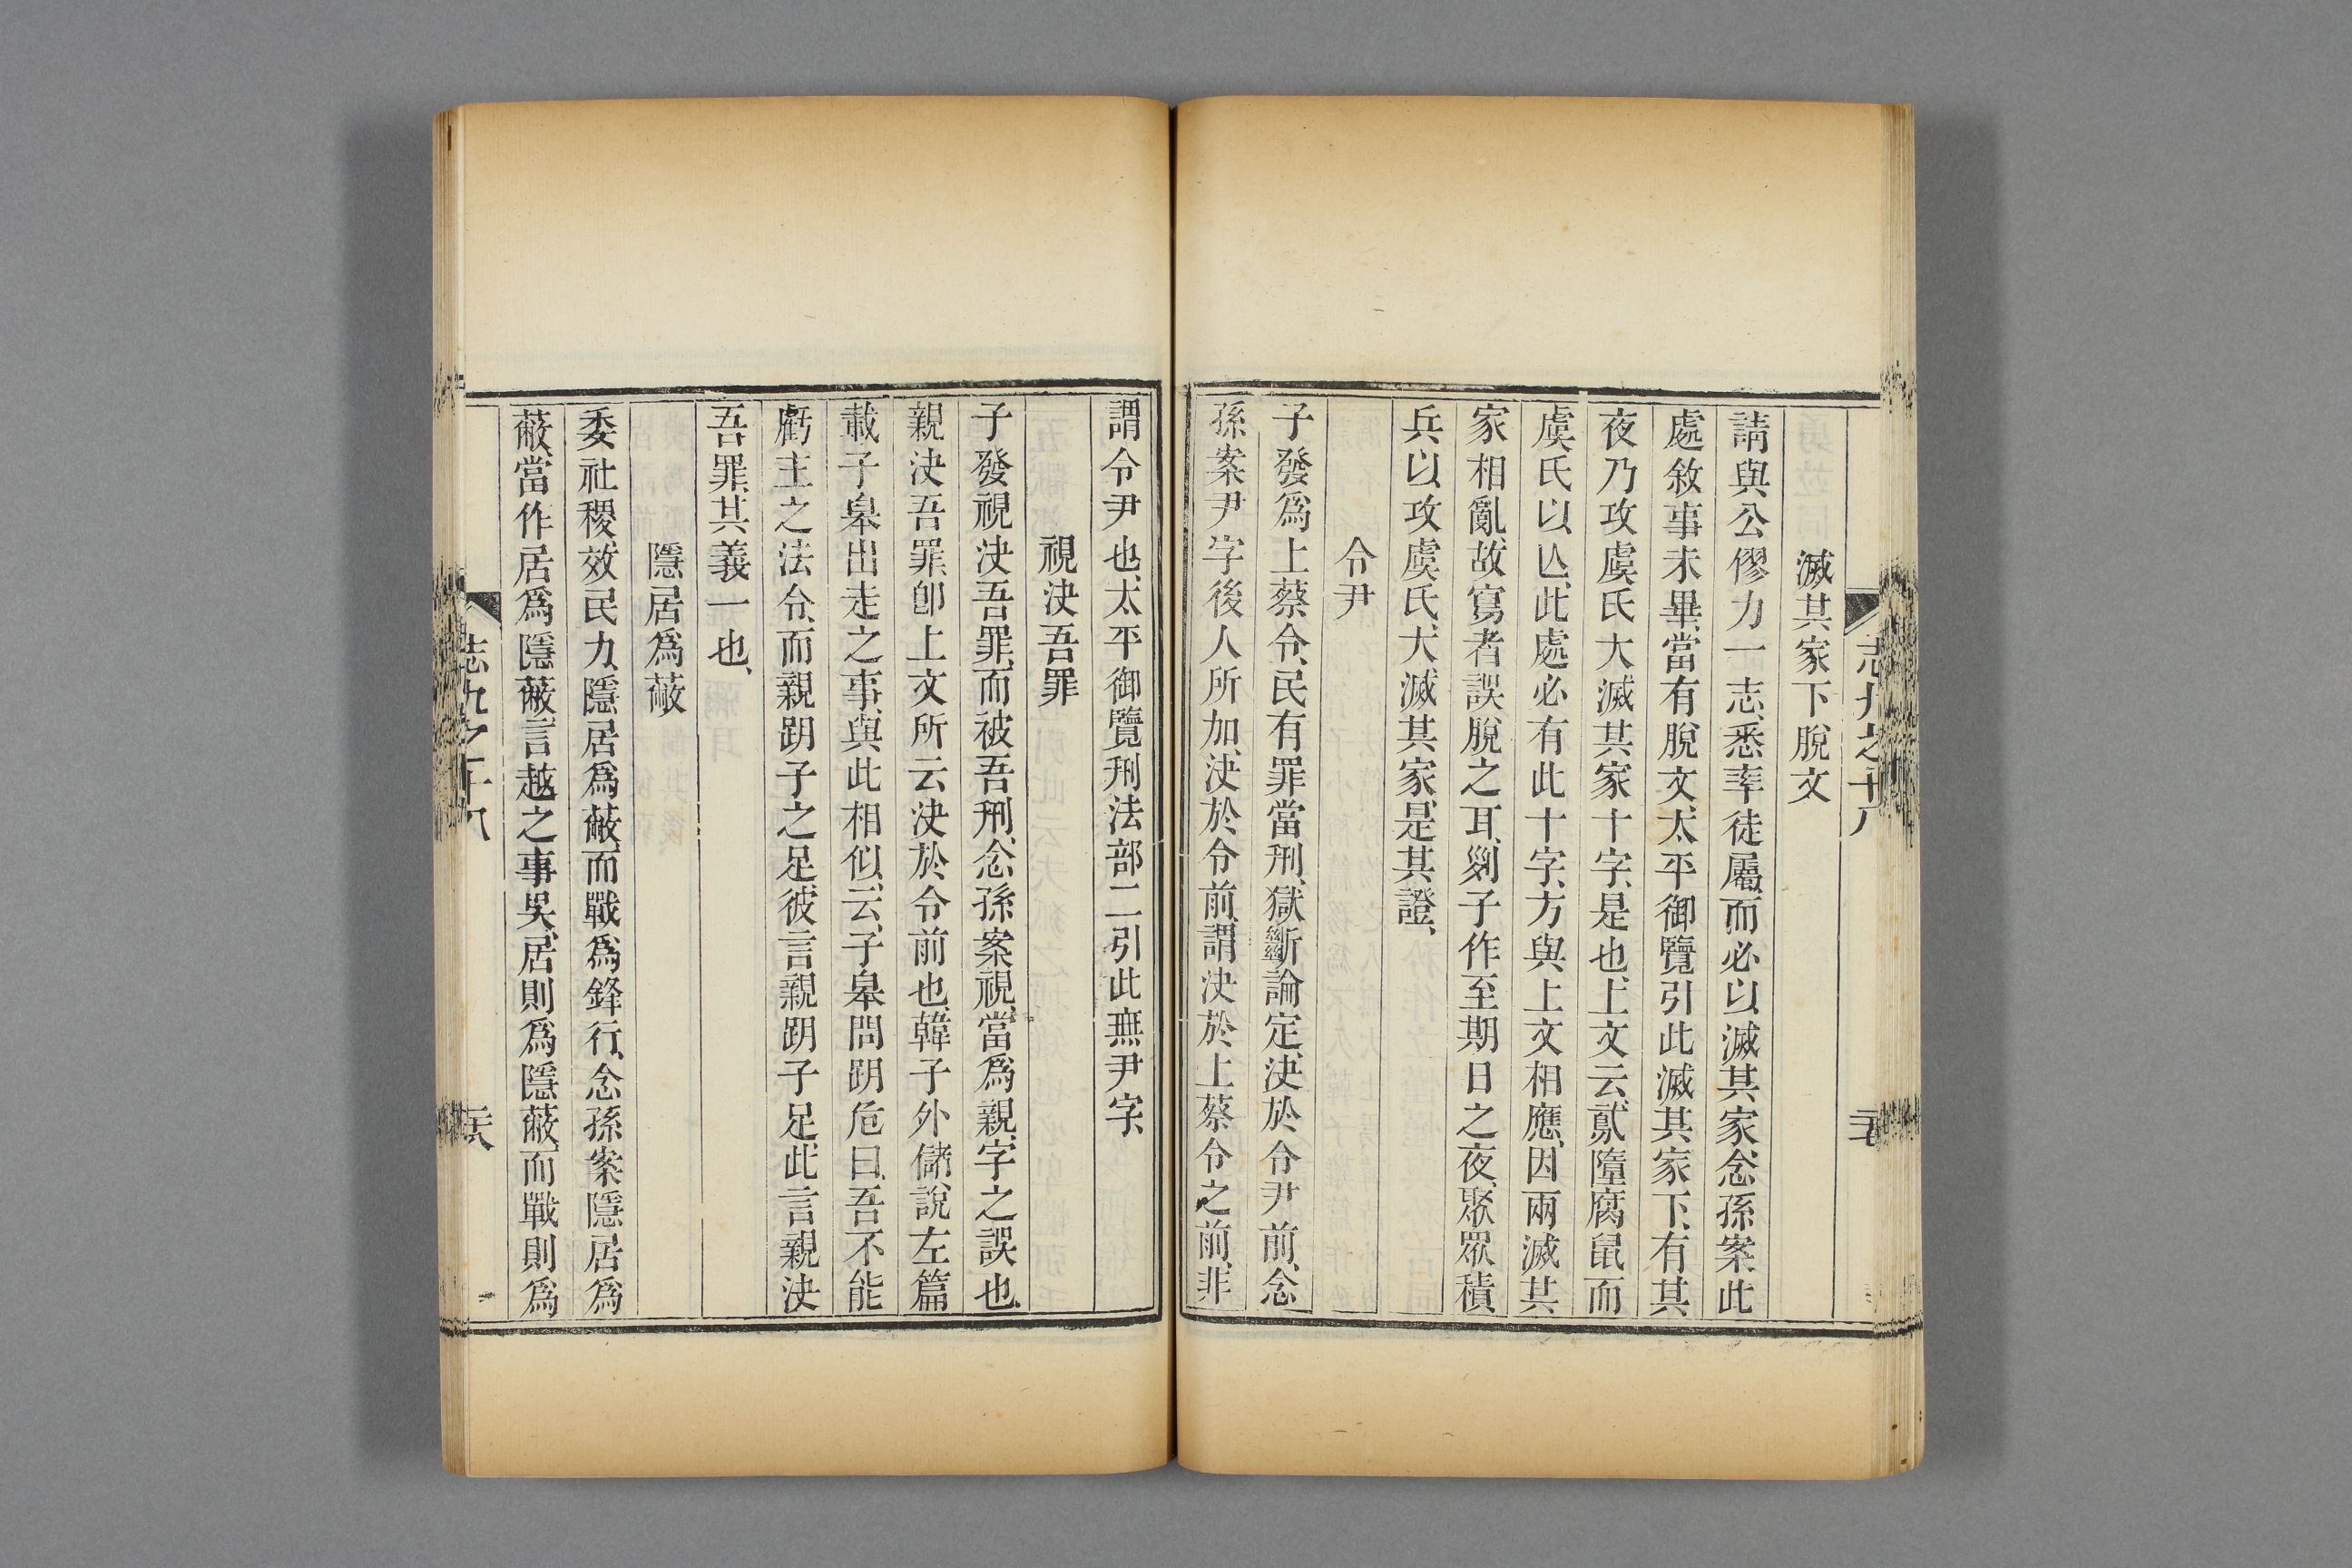 志九之十八
滅其家下脫文
請與公僇力一志、悉率徒屬、而必以滅其家、念孫案、此
處敘事未畢、當有脫文、太平御覽引此滅其家下、有其
夜乃攻虞氏大滅其家十字、是也、上文云、貳隨腐鼠、而
虞氏以亾、此處必有此十字、方與上文相應、因兩滅其
家相亂、故寫者誤脫之耳、列子作至期日之夜、聚眾積
兵以攻虞氏、大滅其家、是其證、
令尹
子發爲上蔡令、民有罪當刑、獄斷論定、決於令尹前、念
孫案、尹字後人所加、決於令前、謂決於上蔡令之前、非
謂令尹也、太平御覽刑法部二引此無尹字、
視決吾罪
子發視決吾罪、而被吾刑、念孫案、視當爲親、字之誤也、
親決吾罪、卽上文所云決於令前也、韓子外儲說左篇
載子皋出走之事、與此相似、云、子皋問跀危曰、吾不能
虧主之法令、而親跀子之足、彼言親跀子足、此言親決
吾罪、其義一也、
隱居爲蔽
委社稷、效民力、隱居爲蔽、而戰爲鋒行、念孫案、隱居爲
蔽、當作居爲隱蔽、言越之事吳、居則爲隱蔽、而戰則爲
志九之十八